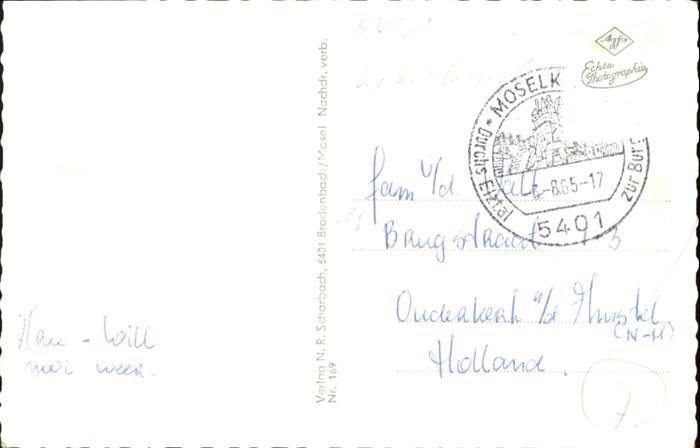 Agfa
Echte
Photographie
MOSELK
* Durchs Eltztal zur Burg
-8.65-17
5401
Fam v/d
Brugstraat 1-3
Ouderkerk a/d Amstel
(N-H)
Holland.
Verlag N. R. Scharbach, 5401 Brodenbach/Mosel Nachdr. verb.
Nr. 169
- Will
mooi weer.
7